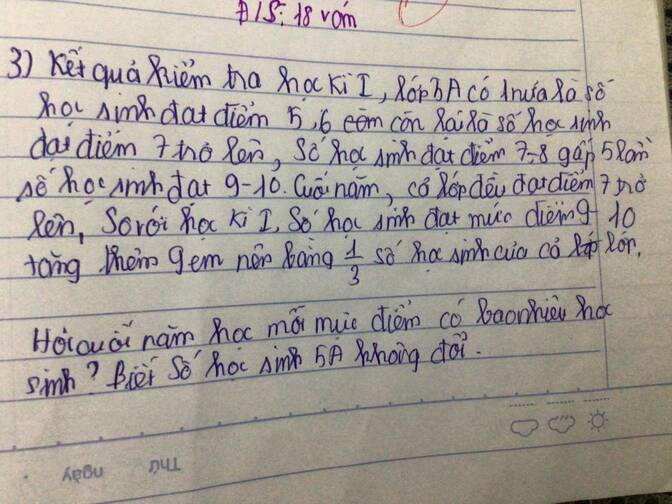 Đ/S: 18 vóm
3) Kết quả kiểm tra học kì I, lớp 5A có 1 nửa là số
học sinh đạt điểm 5, 6 còn còn lại là số học sinh
đạt điểm 7 trở lên, Số học sinh đạt điểm 7-8 gấp 5 lần
số học sinh đạt 9-10. Cuối năm, cả lớp đều đạt điểm 7 trở
lên, So với học kì I, Số học sinh đạt mức điểm 9-10
tăng thêm 9 em nên bằng 1/3 số học sinh của cả lớp lớp.
Hỏi cuối năm học mỗi mức điểm có bao nhiêu học
sinh? Biết Số học sinh 5A không đổi.
Thứ
ngày